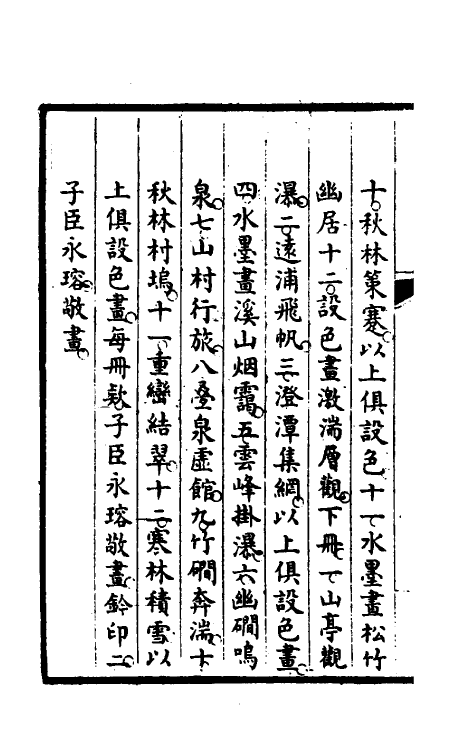 十秋林策蹇以上俱設色十一水墨畫松竹
幽居十二設色畫激湍層觀下冊一山亭觀
瀑二遠浦飛帆三澄潭集網以上俱設色畫
四水墨畫溪山烟靄五雲峰掛瀑六幽磵鳴
泉七山村行旅八疊泉虛館九竹磵奔湍十
秋林村塢十一重巒結翠十二寒林積雪以
上俱設色畫每冊款子臣永瑢敬畫鈐印二
子臣永瑢敬畫